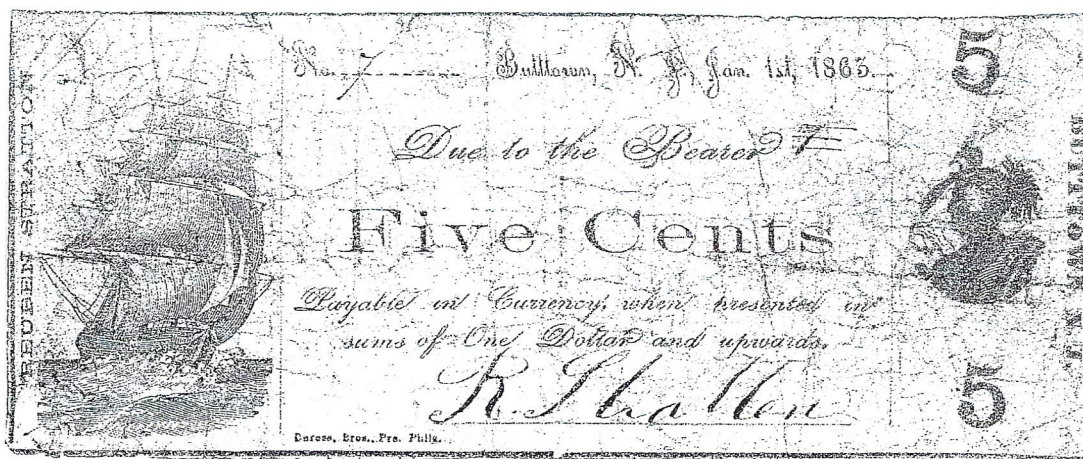 REUBEN STRATTON
No. 7 Butltown, N. J., Jan. 1st, 1863.
Due to the Bearer
Five Cents
Payable in Currency, when presented in
sums of One Dollar and upwards.
R. Stratton
5
5
N. J.